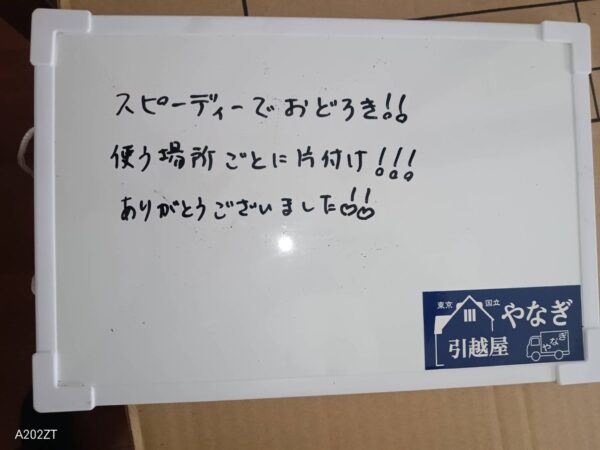 スピーディーでおどろき!!
使う場所ごとに片付け!!!
ありがとうございました!!
東京 国立 やなぎ
引越屋 やなぎ
A202ZT